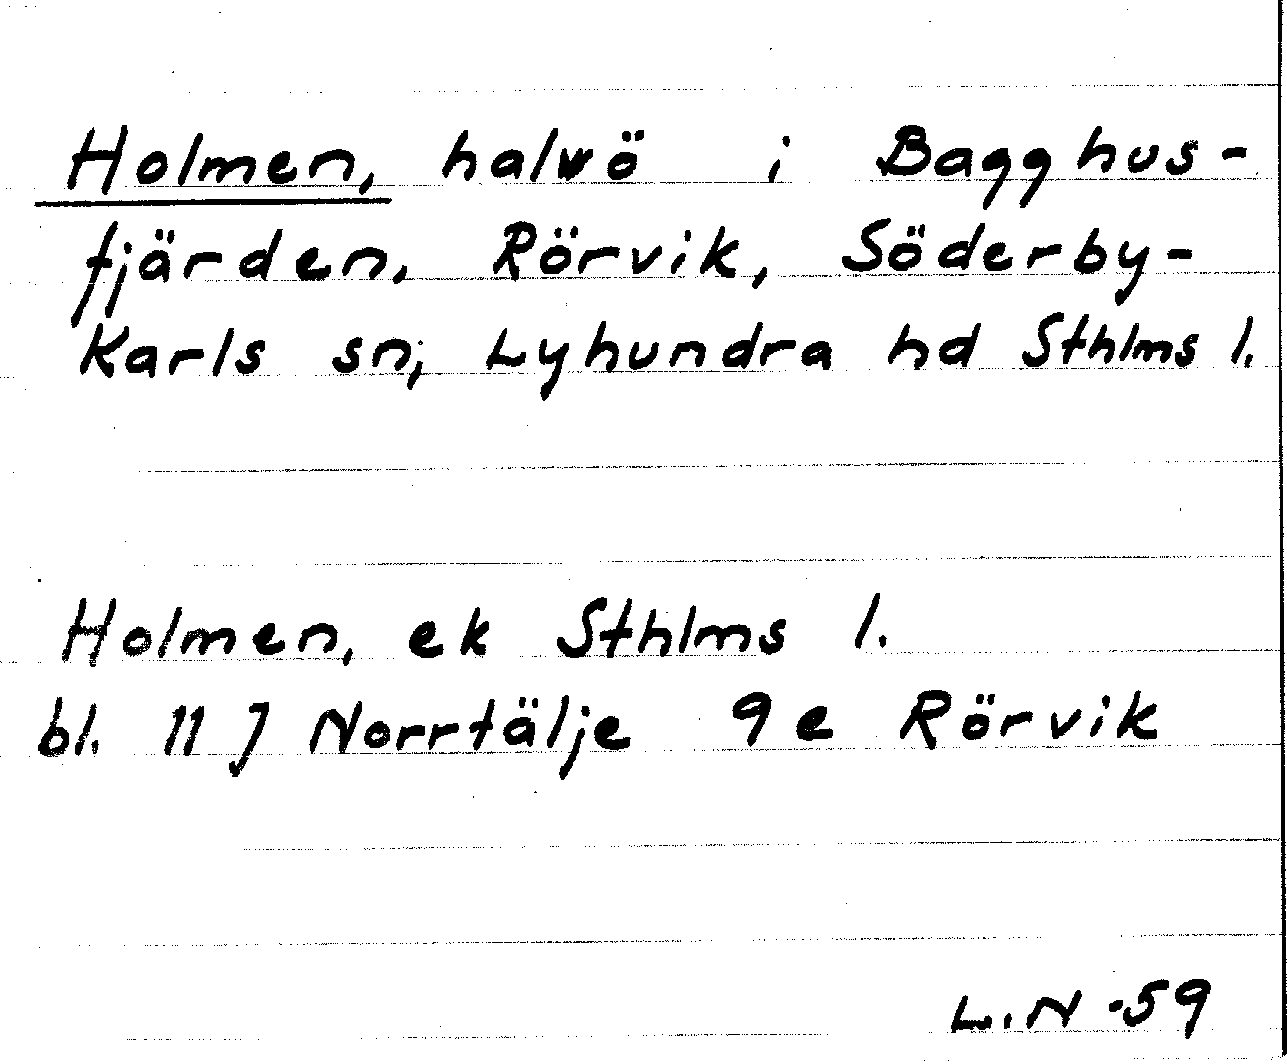 Holmen, halvö i Bagghus-
fjärden, Rörvik, Söderby-
Karls sn, Lyhundra hd Sthlms l.
Holmen, ek Sthlms l.
bl. 11 J Norrtälje 9 e Rörvik
L.N -59